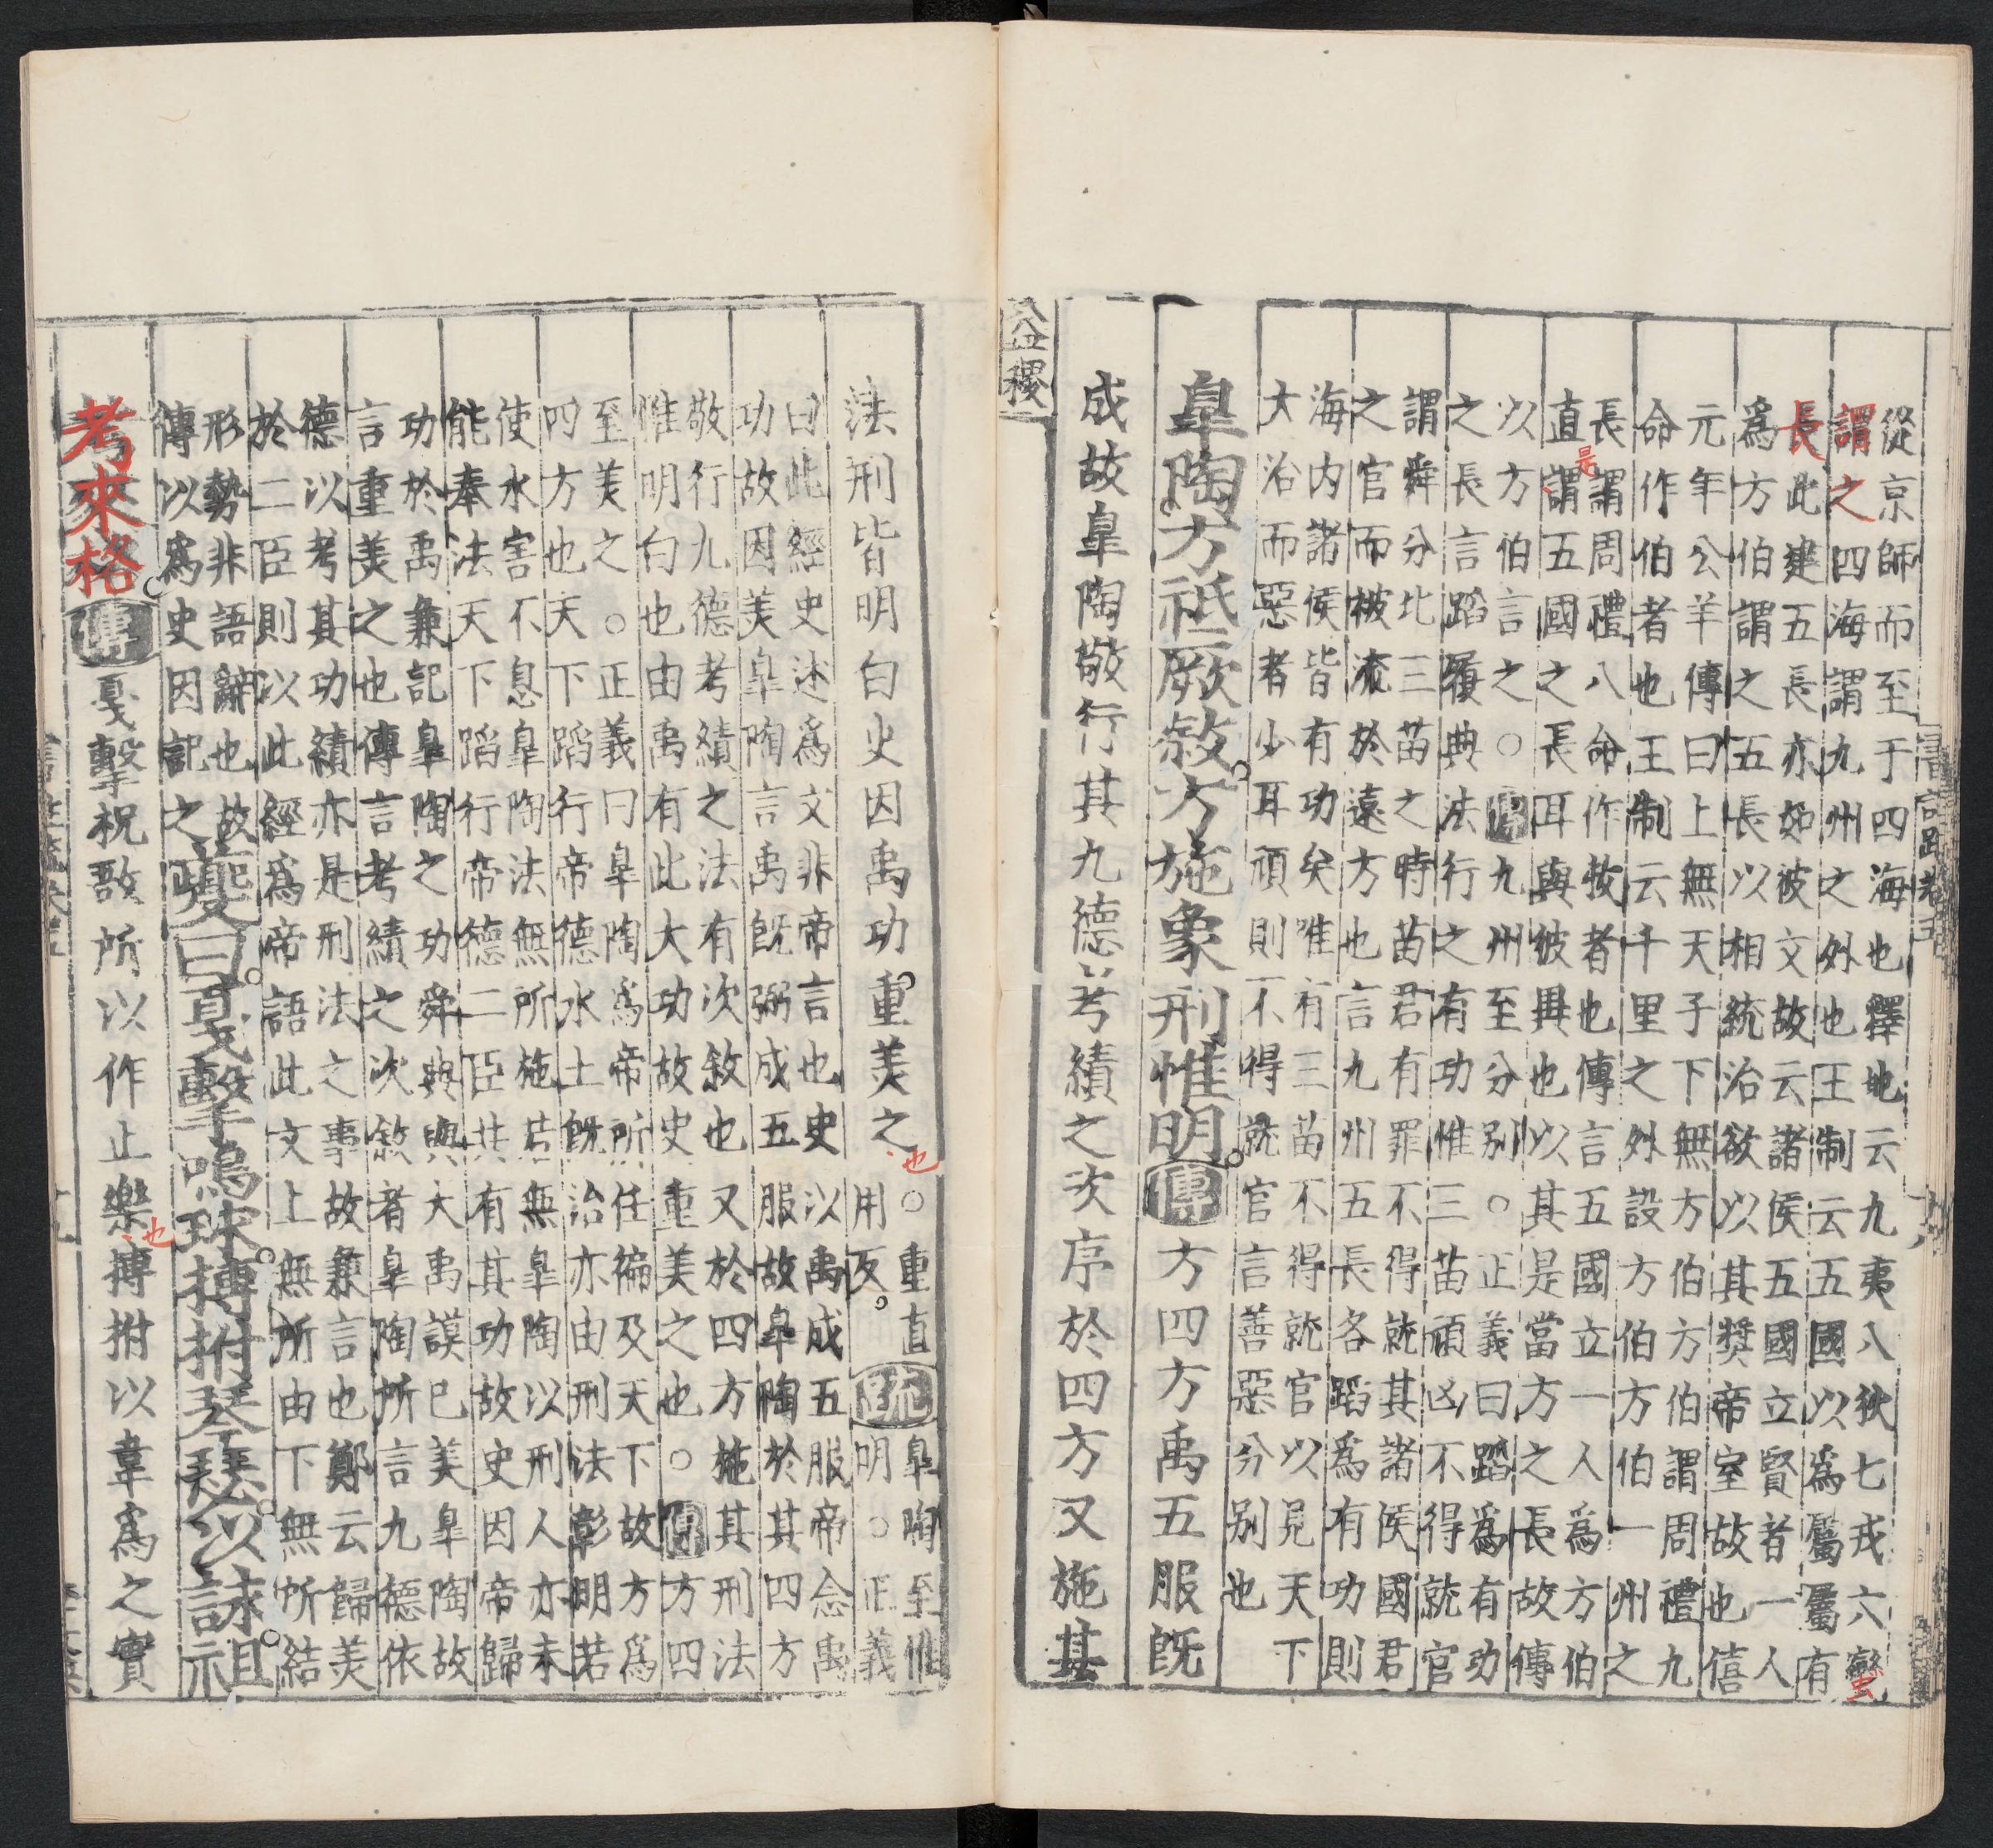 從京師而至于四海也釋地云九夷八狄七戎六蠻
謂之四海謂九州之外也王制云五國以爲屬屬有
長此建五長亦如彼文故云諸侯五國立賢者一人
爲方伯謂之五長以相統治欲以其獎帝室故也僖
元年公羊傳曰上無天子下無方伯方伯謂周禮九
命作伯者也王制云千里之外設方伯方伯一州之
長謂周禮八命作牧者也傳言五國立一人爲方伯
直是謂五國之長耳與彼異也以其是當方之長故傳
以方伯言之○傳九州至分別○正義曰蹈爲有功
之長言蹈履典法行之有功惟三苗頑凶不得就官
謂舜分北三苗之時苗君有罪不得就其諸侯國君
之官而被流於遠方也言九州五長各蹈爲有功則
海內諸侯皆有功矣唯有三苗不得就官以見天下
大治而惡者少耳頑則不得就官言善惡分別也
皐陶方祗厥敘方施象刑惟明傳方四方禹五服旣
成故皐陶敬行其九德考績之次序於四方又施其
益稷
書註疏卷五
法刑皆明白史因禹功重美之也○重直
用反疏皐陶至惟
明○正義
曰此經史述爲文非帝言也史以禹成五服帝念禹
功故因美皐陶言禹旣弼成五服故皐陶於其四方
敬行九德考績之法有次敘也又於四方施其刑法
惟明白也由禹有此大功故史重美之也○傳方四
至美之○正義曰皐陶爲帝所任徧及天下故方爲
四方也天下蹈行帝德水土旣治亦由刑法彰明若
使水害不息皐陶法無所施若無皐陶以刑人亦未
能奉法天下蹈行帝德二臣共有其功故史因帝歸
功於禹兼記皐陶之功舜典與大禹謨已美皐陶故
言重美之也傳言考績之次敘者皐陶所言九德依
德以考其功績亦是刑法之事故兼言也鄭云歸美
於二臣則以此經爲帝語此文上無所由下無所結
形勢非語辭也故
傳以爲史因記之夔曰戛擊鳴球搏拊琴瑟以詠祖
考來格傳戛擊柷敔所以作止樂也搏拊以韋爲之實